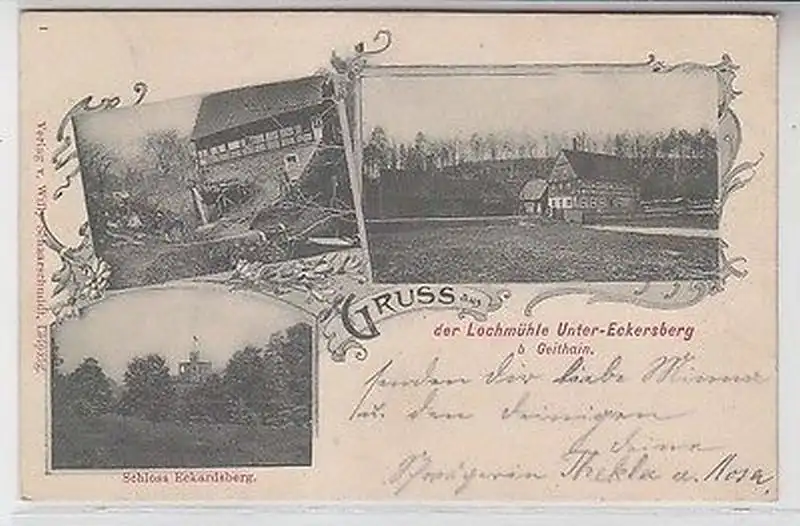 GRUSS aus
der Lochmühle Unter-Eckersberg
b Geithain.
senden dir liebe Minna
u. den deinigen
deine
Schwägerin Thekla u. Rosa.
Schloss Eckardsberg.
Verlag v. Leipzig.